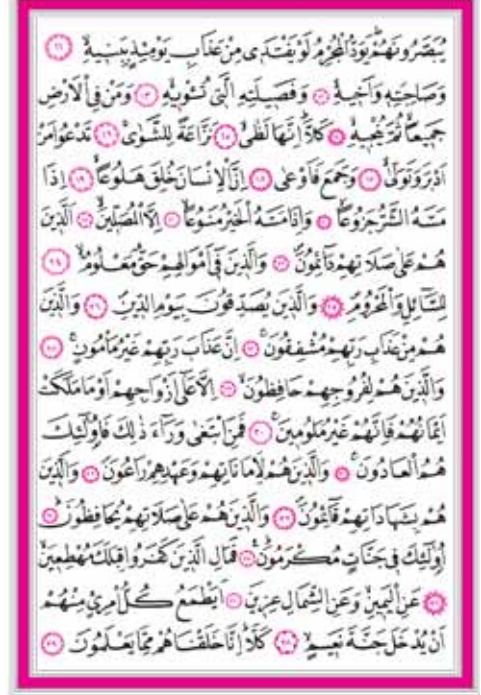 يُبَصَّرُونَهُمْۜ يَوَدُّ الْمُجْرِمُ لَوْ يَفْتَدٖى مِنْ عَذَابِ يَوْمِئِذٍ بِبَنٖيهِۙ ﴿١١﴾
وَصَاحِبَتِهٖ وَاَخٖيهِۙ ﴿١٢﴾ وَفَصٖيلَتِهِ الَّتٖى تُـْٔوٖيهِۙ ﴿١٣﴾ وَمَنْ فِى الْاَرْضِ
جَمٖيعًاۙ ثُمَّ يُنْجٖيهِۙ ﴿١٤﴾ كَلَّاۜ اِنَّهَا لَظٰىۙ ﴿١٥﴾ نَزَّاعَةً لِلشَّوٰىۚ ﴿١٦﴾ تَدْعُوا مَنْ
اَدْبَرَ وَتَوَلّٰىۙ ﴿١٧﴾ وَجَمَعَ فَاَوْعٰى ﴿١٨﴾ اِنَّ الْاِنْسَانَ خُلِقَ هَلُوعًاۙ ﴿١٩﴾ اِذَا
مَسَّهُ الشَّرُّ جَزُوعًاۙ ﴿٢٠﴾ وَاِذَا مَسَّهُ الْخَيْرُ مَنُوعًاۙ ﴿٢١﴾ اِلَّا الْمُصَلّٖينَۙ ﴿٢٢﴾ اَلَّذٖينَ
هُمْ عَلٰى صَلَاتِهِمْ دَٓائِمُونَۙ ﴿٢٣﴾ وَالَّذٖينَ فٖٓى اَمْوَالِهِمْ حَقٌّ مَعْلُومٌۙ ﴿٢٤﴾
لِلسَّٓائِلِ وَالْمَحْرُومِۙ ﴿٢٥﴾ وَالَّذٖينَ يُصَدِّقُونَ بِيَوْمِ الدّٖينِۙ ﴿٢٦﴾ وَالَّذٖينَ
هُمْ مِنْ عَذَابِ رَبِّهِمْ مُشْفِقُونَۚ ﴿٢٧﴾ اِنَّ عَذَابَ رَبِّهِمْ غَيْرُ مَأْمُونٍۚ ﴿٢٨﴾
وَالَّذٖينَ هُمْ لِفُرُوجِهِمْ حَافِظُونَۙ ﴿٢٩﴾ اِلَّا عَلٰٓى اَزْوَاجِهِمْ اَوْ مَا مَلَكَتْ
اَيْمَانُهُمْ فَاِنَّهُمْ غَيْرُ مَلُومٖينَۚ ﴿٣٠﴾ فَمَنِ ابْتَغٰى وَرَٓاءَ ذٰلِكَ فَاُو۬لٰٓئِكَ
هُمُ الْعَادُونَۚ ﴿٣١﴾ وَالَّذٖينَ هُمْ لِاَمَانَاتِهِمْ وَعَهْدِهِمْ رَاعُونَۙ ﴿٣٢﴾ وَالَّذٖينَ
هُمْ بِشَهَادَاتِهِمْ قَٓائِمُونَۙ ﴿٣٣﴾ وَالَّذٖينَ هُمْ عَلٰى صَلَاتِهِمْ يُحَافِظُونَۜ ﴿٣٤﴾
اُو۬لٰٓئِكَ فٖى جَنَّاتٍ مُكْرَمُونَۜ ﴿٣٥﴾ فَمَالِ الَّذٖينَ كَفَرُوا قِبَلَكَ مُهْطِعٖينَۙ
﴿٣٦﴾ عَنِ الْيَمٖينِ وَعَنِ الشِّمَالِ عِزٖينَ ﴿٣٧﴾ اَيَطْمَعُ كُلُّ امْرِئٍ مِنْهُمْ
اَنْ يُدْخَلَ جَنَّةَ نَعٖيمٍۙ ﴿٣٨﴾ كَلَّاۜ اِنَّا خَلَقْنَاهُمْ مِمَّا يَعْلَمُونَ ﴿٣٩﴾